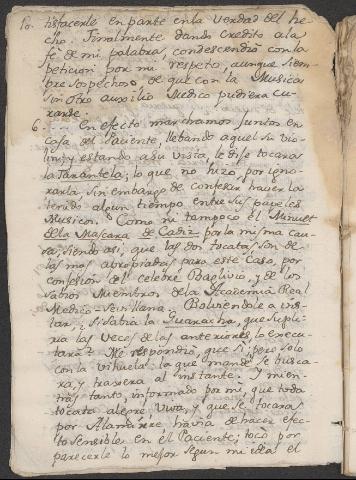 10. tisfacerle en parte en la verdad del he-
cho. Finalmente dando credito a la
fè de mi palabra, condescendiò con la
peticion por mi respeto, aunque siem-
pre sospechoso, de que con la Musica
sin otro auxilio Medico pudiera cu-
rarse.
6. En efecto marchamos juntos en
casa del Paciente, llebando aquel su vio-
lin; y estando a su vista, le dixe tocara
la Tarantela; lo que no hizo, por igno-
rarla sin embargo de confesar haverla
tenido algun tiempo entre sus papeles
Musicos. Como ni tampoco el Minuet
de la Mascara de Cadiz por la misma cau-
sa; siendo asi, que las dos tocatas son de
las mas apropiadas para este Caso, por
confesion del celebre Baglivio, y de los
sabios Miembros de la Academia Real
Medico-Sevillana. Bolviendole a ins-
tar, si sabia la Guaracha, que supli-
ria las veces de las anteriores, la execu-
tara? Me respondiò, que si; pero solo
con la vihuela: la que mandè se busca-
ra, y traxera al instante. Y mien-
tras tanto, informado por mi, que toda
tocata alegre, viva, y que se tocara
por Alamirre havia de hacer efec-
to sensible en el Paciente; tocò por
parecerle lo mejor segun mi idea el